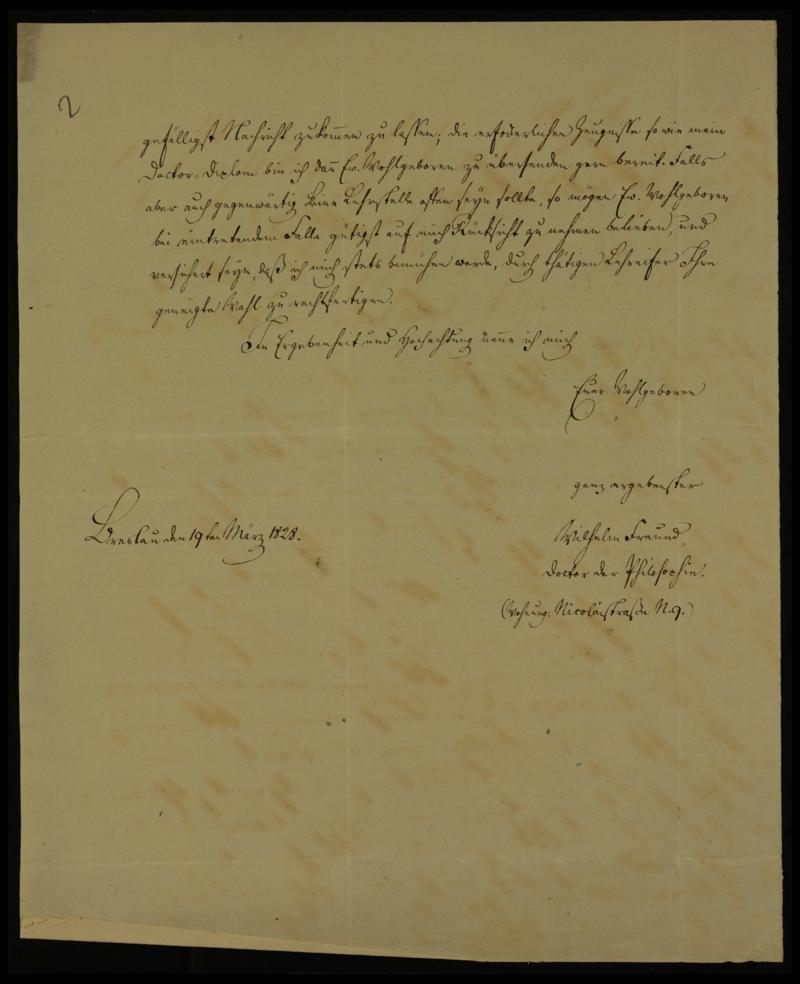 2
gefälligst Nachricht zukommen zu lassen; die erfoderlichen Zeugnisse so wie mein
Doctor-Diplom bin ich dann Ew. Wohlgeboren zu übersenden gern bereit. Falls
aber auch gegenwärtig keine Lehrstelle offen seyn sollte, so mögen Ew. Wohlgeboren
bei eintretendem Falle gütigst auf mich Rücksicht zu nehmen belieben, und
versichert seyn, daß ich mich stets bemühen werde, durch thätigen Lehreifer Ihre
geneigte Wahl zu rechtfertigen.
In Ergebenheit und Hochachtung nenne ich mich
Euer Wohlgeboren
ganz ergebenster
Breslau den 19ten März 1828.
Wilhelm Freund,
Doctor der Philosophie.
(Wohnung: Nicolaistraße N. 9.)